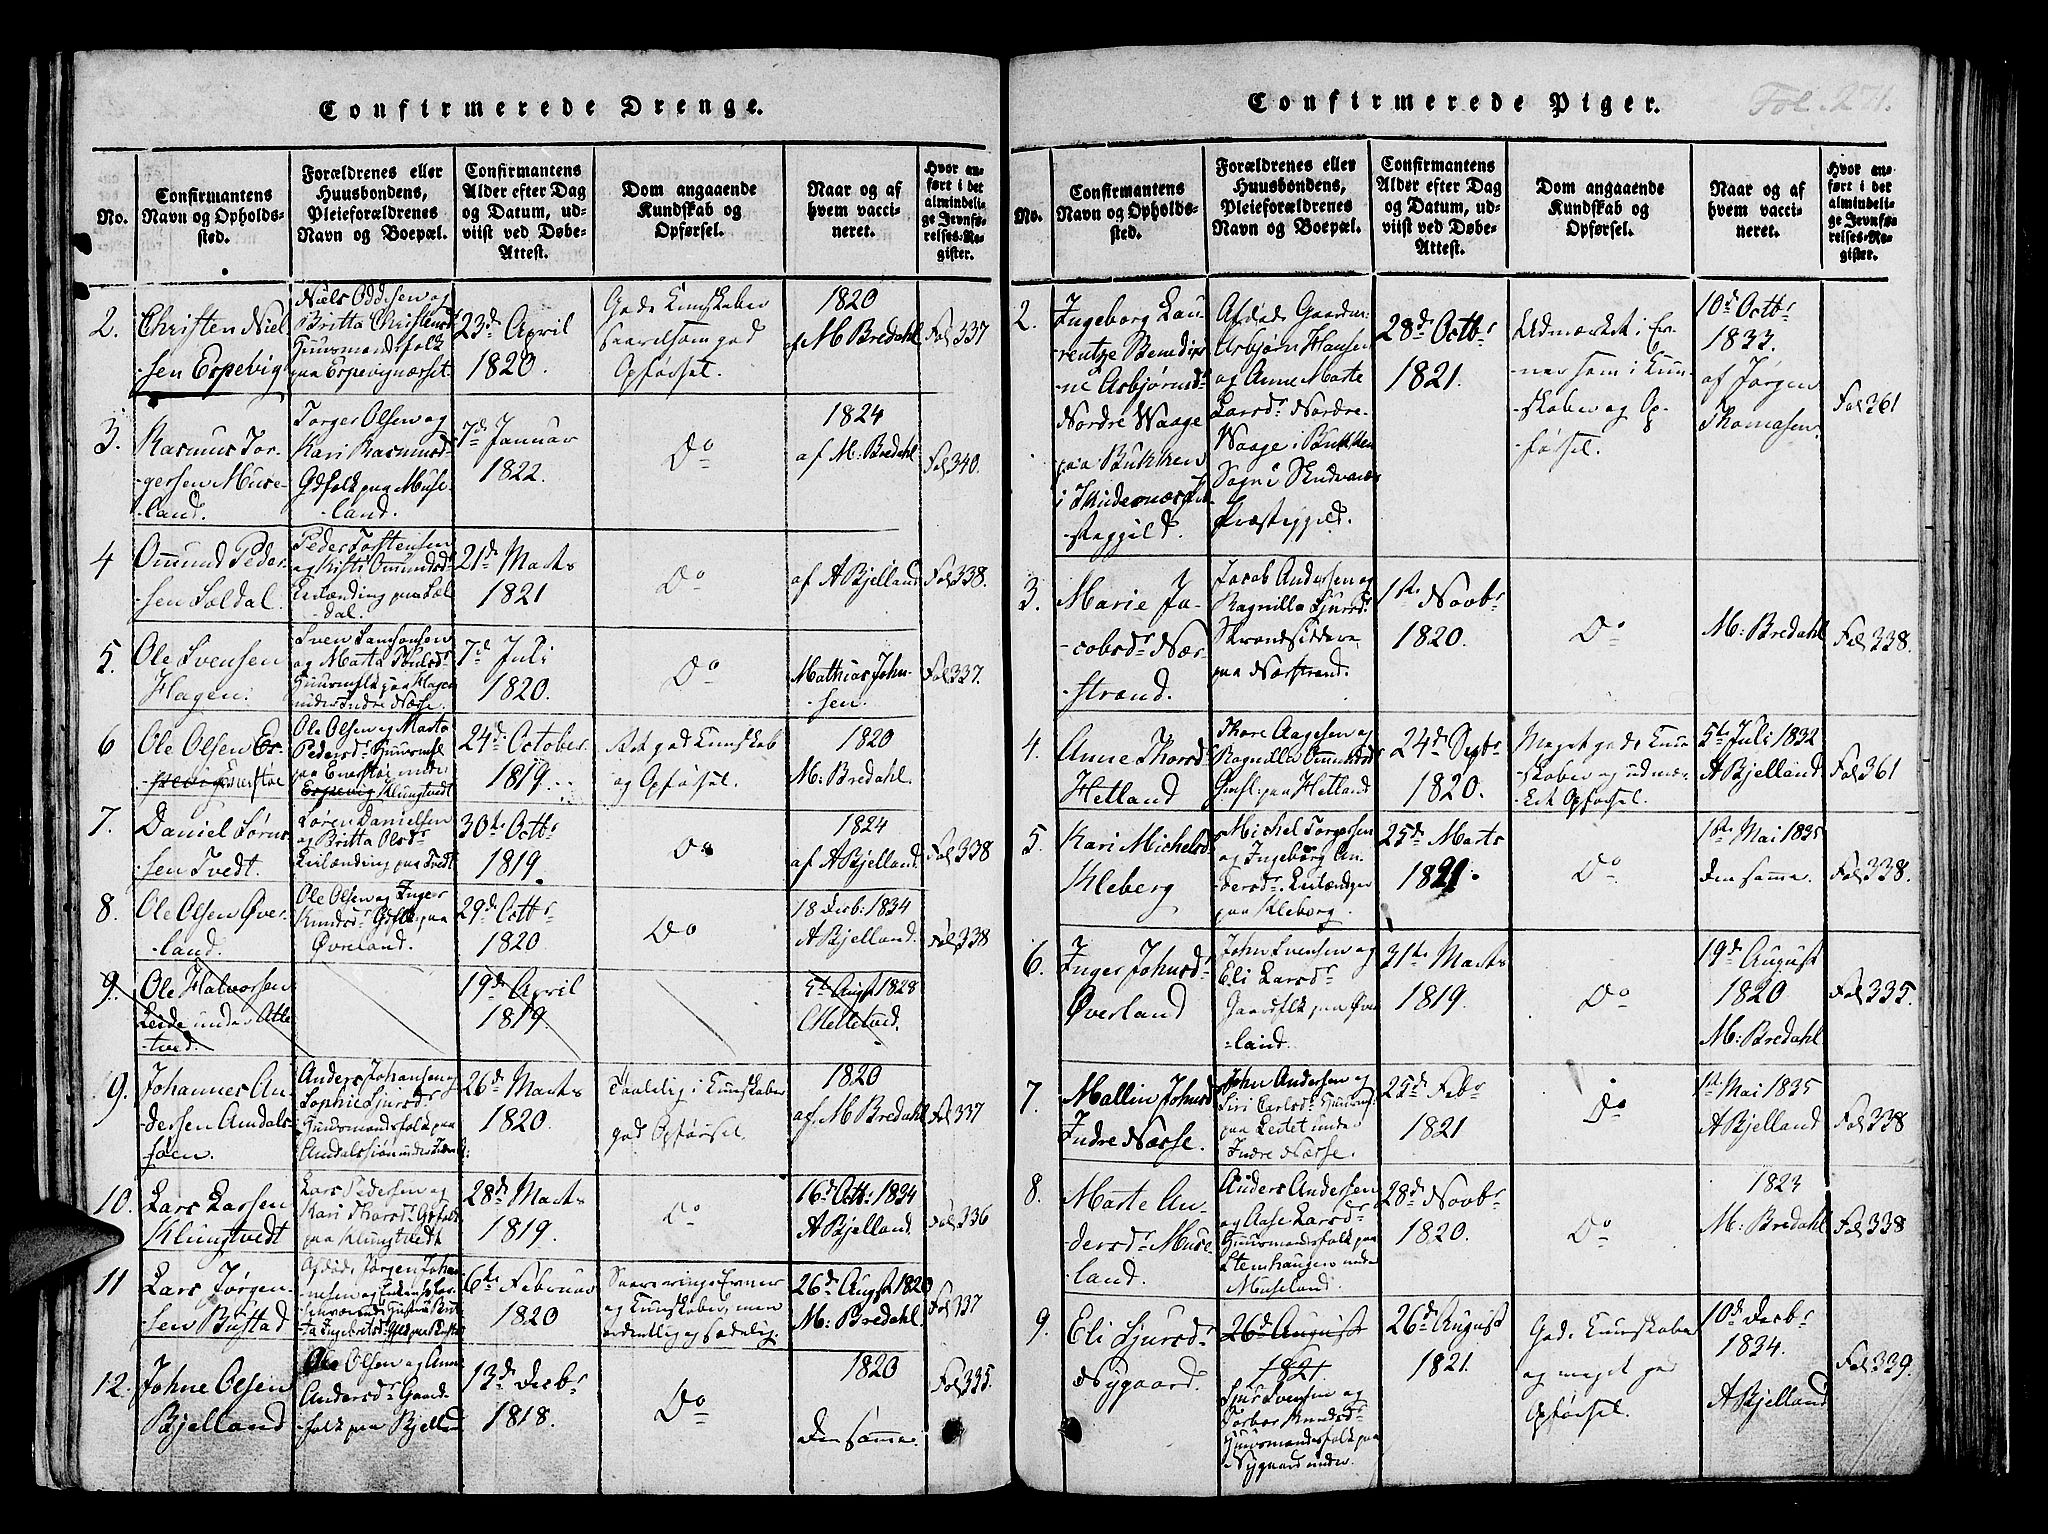 Confirmerede Drenge.
No.
Confirmantens
Navn og Opholds-
sted.
Forældrenes eller
Huusbondens,
Pleieforældrenes
Navn og Boepæl.
Confirmantens
Alder efter Dag
og Datum, ud-
viist ved Døbe-
Attest.
Dom angaaende
Kundskab og
Opførsel.
Naar og af
hvem vacci-
neret.
Hvor an-
ført i det
almindeli-
ge Jevnfø-
relses-Re-
gister.
2.
Christen Niel
-sen Espevig
Niels Oddesen og
Britta Christensd
Huusmandsfolk
paa Espevignæsset
23d April
1820.
Gode Kundskaber
saavelsom god
Opførsel.
1820
af M Bredahl
Fol 337
3.
Rasmus Tor-
-gersen Muse-
land.
Torger Olsen og
Kari Rasmusd
Gdfolk paa Muse-
-land.
7d Januar
1822.
Do
1824
af M: Bredahl
Fol 340.
4
Ommund Peder
-sen Søldal.
Peder Torstensen
og Kisti Ommundsd
Leilænding paa Søl
-dal.
21d Marts
1821
Do
af A Bjelland
Fol 338.
5.
Ole Svensen
Hagen.
Sven Samsonsen
og Marta
Huusmflk paa Hagen
under Indre Næsse.
7d Juli
1820.
Do
Mathias John-
sen.
Fol 337.
6
Ole Olsen Es-
Ole Olsen og Marta
Pedersdr Huusmfl
paa under
Espevig Klungtvedt
24d October
1819.
Ret god Kundskab
og Opførsel.
1820
M: Bredahl.
7.
Daniel Sørn-
sen Tvedt.
Søren Danielsen
og Britta Olsdr
Leilænding paa Tvedt
30te Octbr
1819.
Do
1824
af A Bjelland.
Fol 338
8.
Ole Olsen Øver-
-land.
Ole Olsen og Inger
Knudsdr Gdfolk paa
Øvreland.
29d Octbr
1820
Do
18 Decb: 1834
A Bjelland.
Fol 338
9.
Ole Halvorsen
Leide under Atle
-tved.
19d April
1819.
5d Augst 1828
C Mellstved.
9.
Johannes An
dersen Amdals
-søen.
Anders Johansen og
Sophie Sjursdr
Huusmandsfolk paa
26d Marts
1820.
Taalelig i Kundskaber
god Opførsel.
1820
af M Bredahl
Fol 337
10.
Lars Larsen
Klungtvedt
Lars Pedersen og
Kari Thorsdr Gdfolk
paa Klungtvedt
28d Marts
1819.
Do
16d Oct: 1834
A Bjelland.
Fol 336
11
Lars Jørgen-
sen Bustad
Afdøde Jørgen Johan
6te Februar
1820
Saare ringe Evner
og Kundskaber, men
ordentlig og sædelig.
26d Augst 1820
M: Bredahl.
Fol 337
12.
Johne Olsen
Bjelland
Ole Olsen og Anne
Andersdr Gaard-
-folk paa Bjelland
13d Decbr
1818.
Do
1820
den samme.
Fol 335.
Confirmerede Piger.
Fol. 271.
No.
Confirmantens
Navn og Opholds-
sted.
Forældrenes eller
Huusbondens,
Pleieforældrenes
Navn og Boepæl.
Confirmantens
Alder efter Dag
og Datum, ud-
viist ved Døbe-
Attest.
Dom angaaende
Kundskab og
Opførsel.
Naar og af
hvem vacci-
neret.
Hvor an-
ført i det
almindeli-
ge Jevnfø-
relses-Re-
gister.
2.
Ingeborg Lau-
rentze Bendix
-ne Asbjørnsdr
Nordre Vaage
paa Bukken
i Skudesnæs Præ
-stegjeld.
Afdøde Gaardm:
Asbjørn Hansen
og Anne Marte
Larsdr Nordre-
Vaage i Bukken
Sogn i Skudenæs
Præstegjeld.
28d Octbr
1821.
Udmærket i Ev-
ner som i Kun
-skaber og Op-
førsel.
10d Octbr
1833.
af Jørgen
Thomasen.
Fol 361
3.
Marie Ja-
-cobsdr Nær-
-strand.
Jacob Andersen og
Ragnilla Sjursdr
Strandsiddere
paa Nærstrand.
1ste Novbr
1820.
Do
M: Bredahl
Fol 338.
4.
Anne Thorsd
Hetland
Thore Aagesen og
Ragnilla Ommundsdr
Gmfl: paa Hetland
24d Septbr
1820.
Meget gode Kun
-skaber og udmær-
-ket Opførsel.
5te Juli 1832
A Bjelland
Fol 361
5.
Kari Michelsd
Kleberg
Michel Torgersen
og Ingeborg An-
dersdr. Leilænding
paa Kleberg.
25d Marts
1821.
Do
1ste Mai 1835
den samme.
Fol 338.
6.
Inger Johnsdr
Øverland
John Svensen og
Eli Larsdr
Gaardfolk paa Øver
-land.
31te Marts
1819.
Do
19d August
1820
M: Bredahl
Fol 335.
7.
Mallin Johnsd
Indre Næsse.
John Andersen og
Siri Carlsdr Huusm:
paa Leitet under
Indre Næsse.
25d Febr
1821
Do
1st Mai 1835
A Bjelland
Fol 338
8.
Marte An-
dersdr Muse
land.
Anders Andersen
og Aase Larsdr
Huusmandsfolk paa
Steenhaugen under
Museland.
28d Novbr
1820.
Do
1823
M: Bredahl
Fol 338
9.
Eli Sjursdr
Nygaard.
26d August
1821.
Sjur Svensen og
Torbor Knudsdr
Huusmandsfolk paa
Nygaard under
26d August
1821.
Gode Kundskaber
og meget god
Opførsel.
10d Decbr
1834.
A Bjelland
Fol 339.